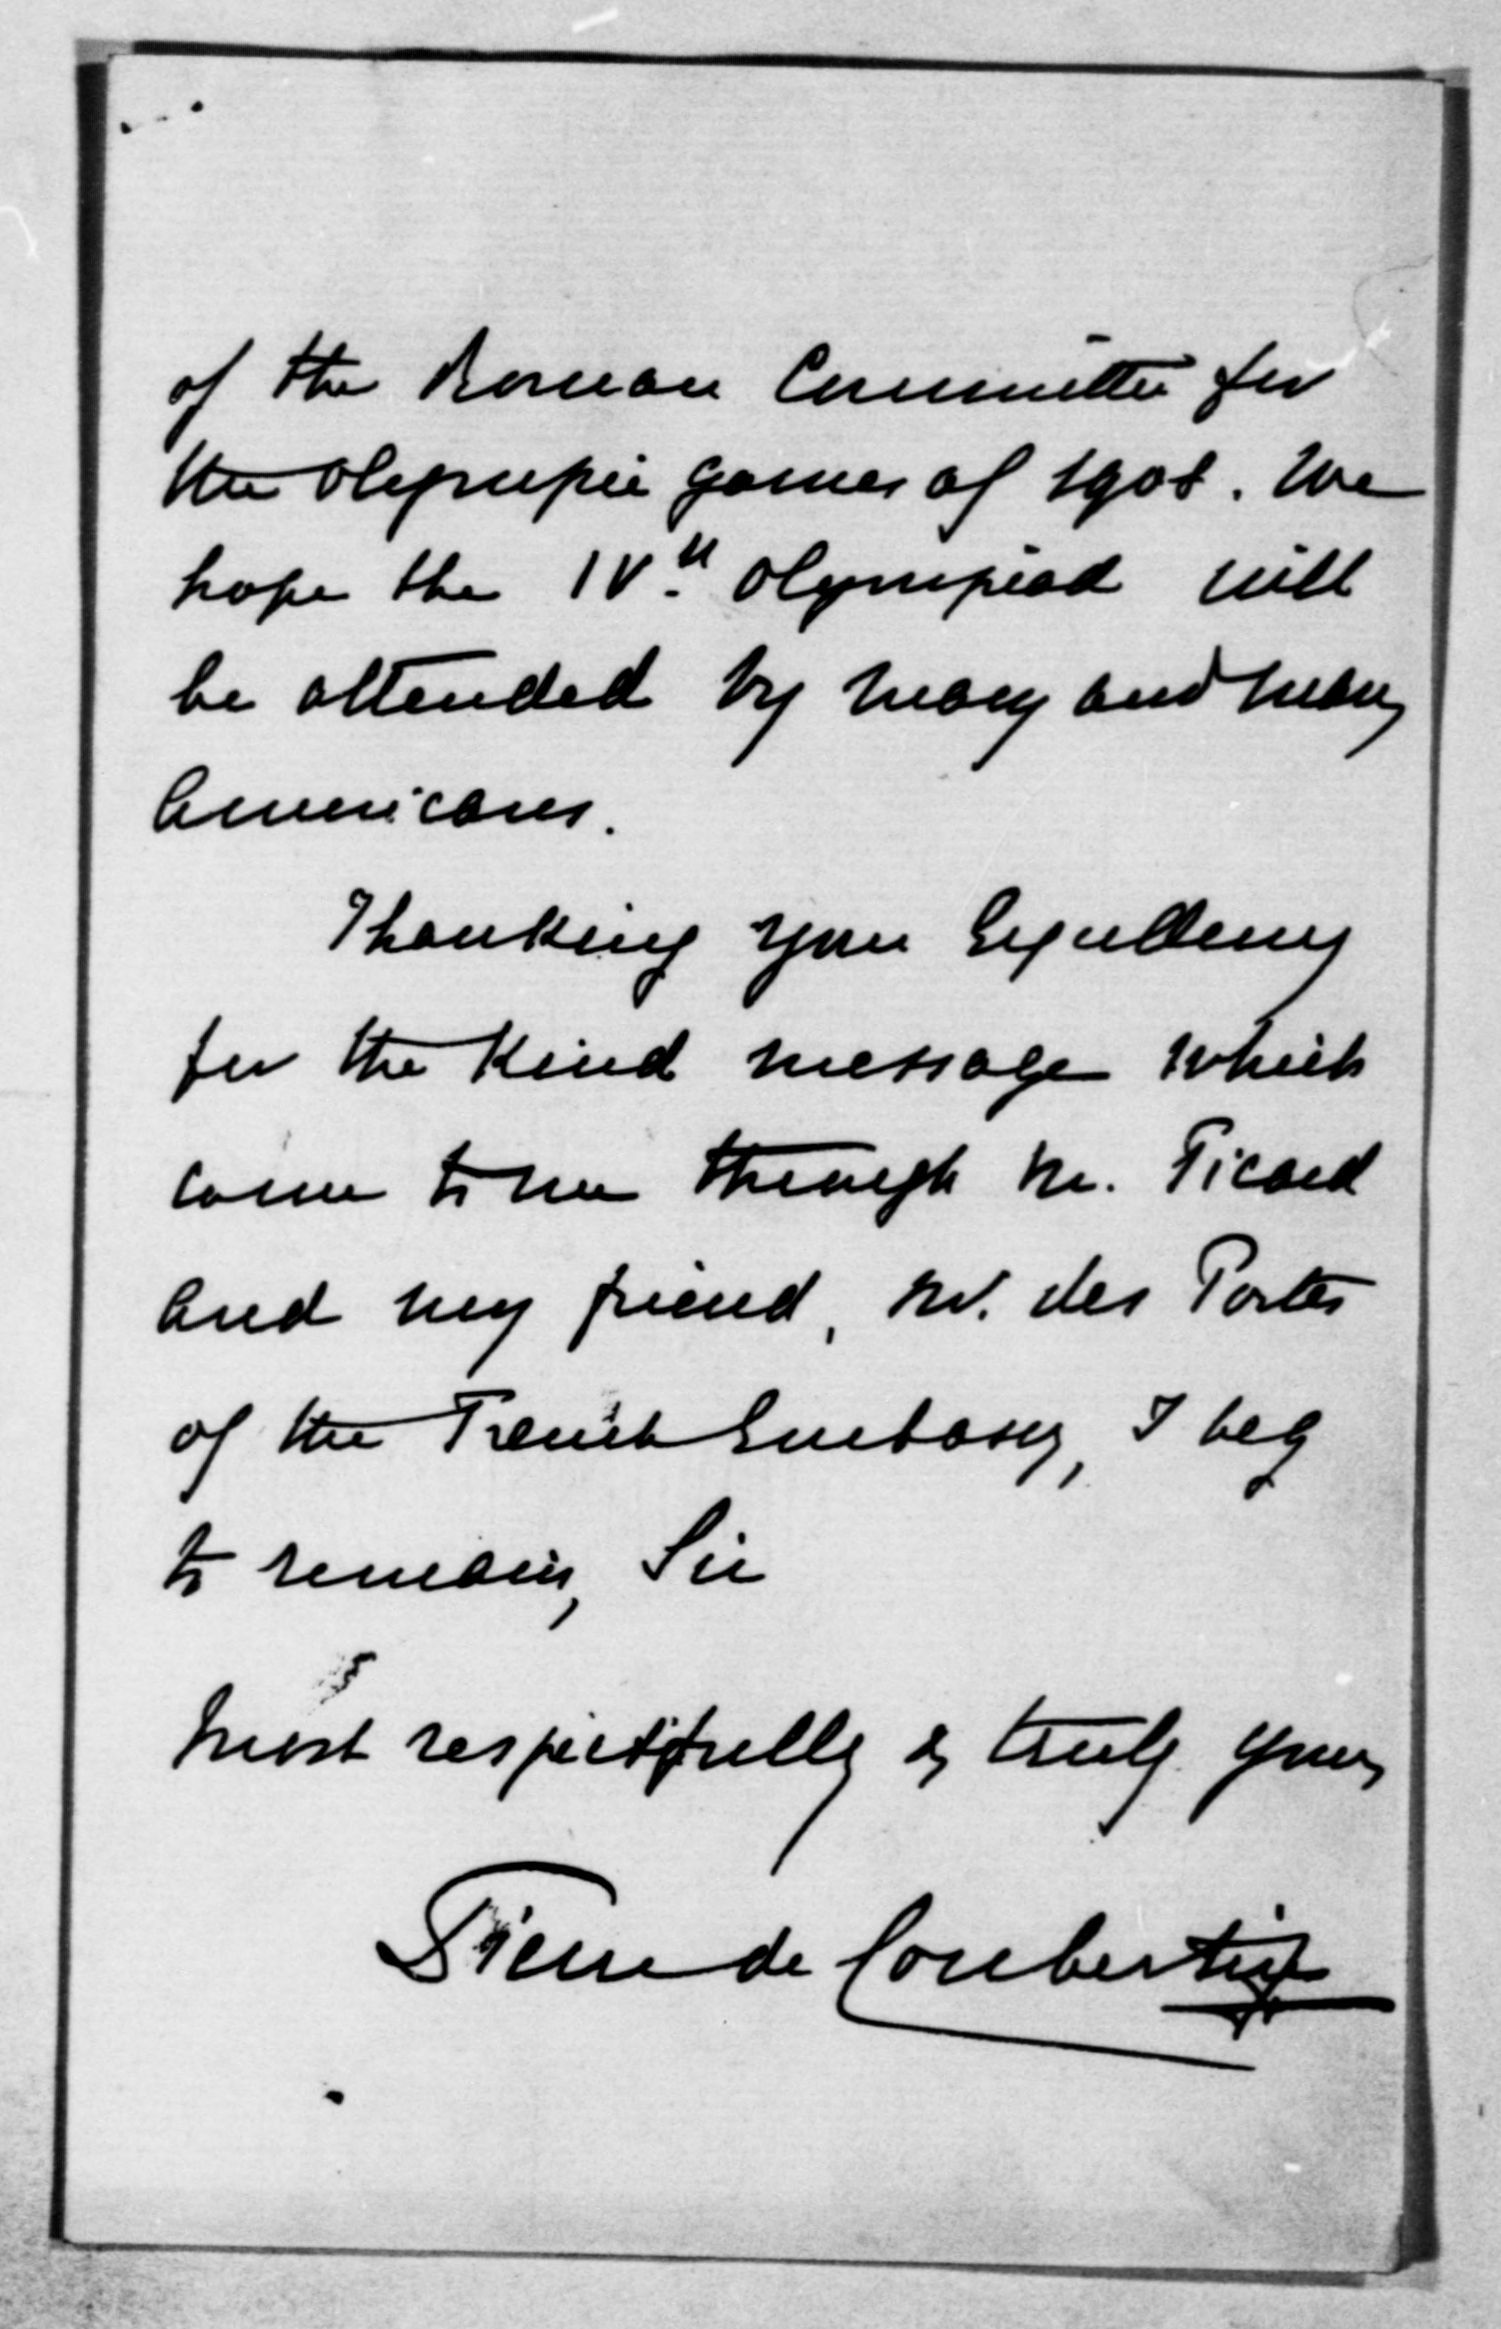 of the Roman Committee for
the Olympic games of 1908. We
hope the IVth Olympiad will
be attended by many and many
Americans.
Thanking your Excellency
for the kind message which
came to me through Mr. Picard
and my friend, Mr. des Portes
of the French Embassy, I beg
to remain, Sir
Most respectfully & truly yours
Pierre de Coubertin